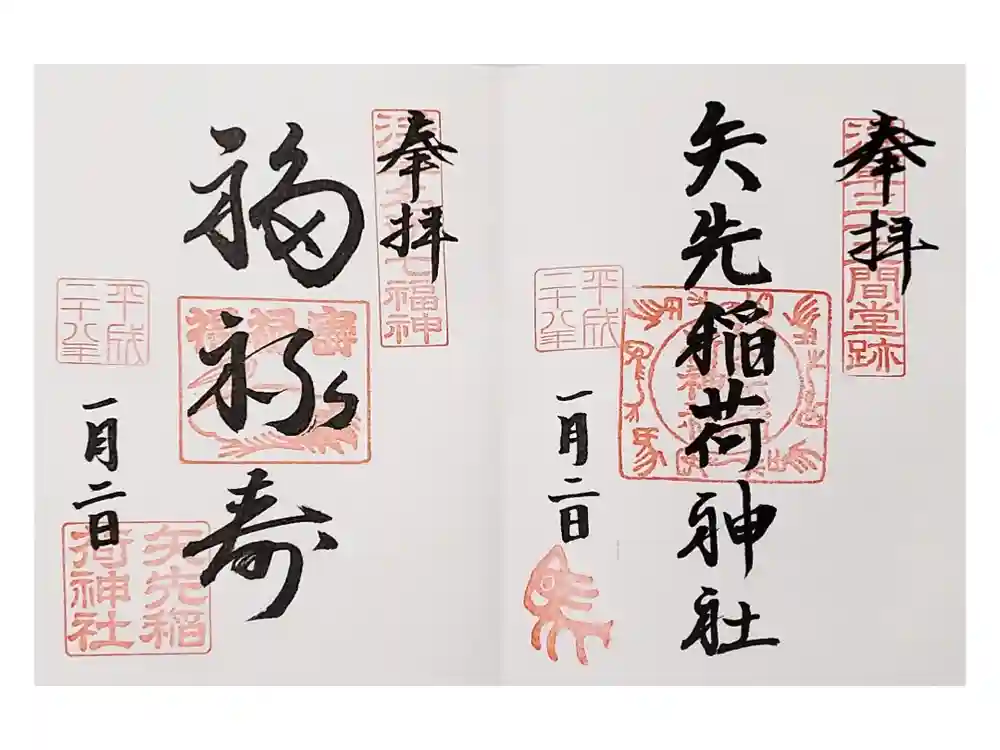 奉拝
浅草三十三間堂跡
矢先稲荷神社
平成
二十八年
一月二日
奉拝
浅草名所七福神
福禄寿
福禄壽
平成
二十八年
一月二日
矢先稲
荷神社